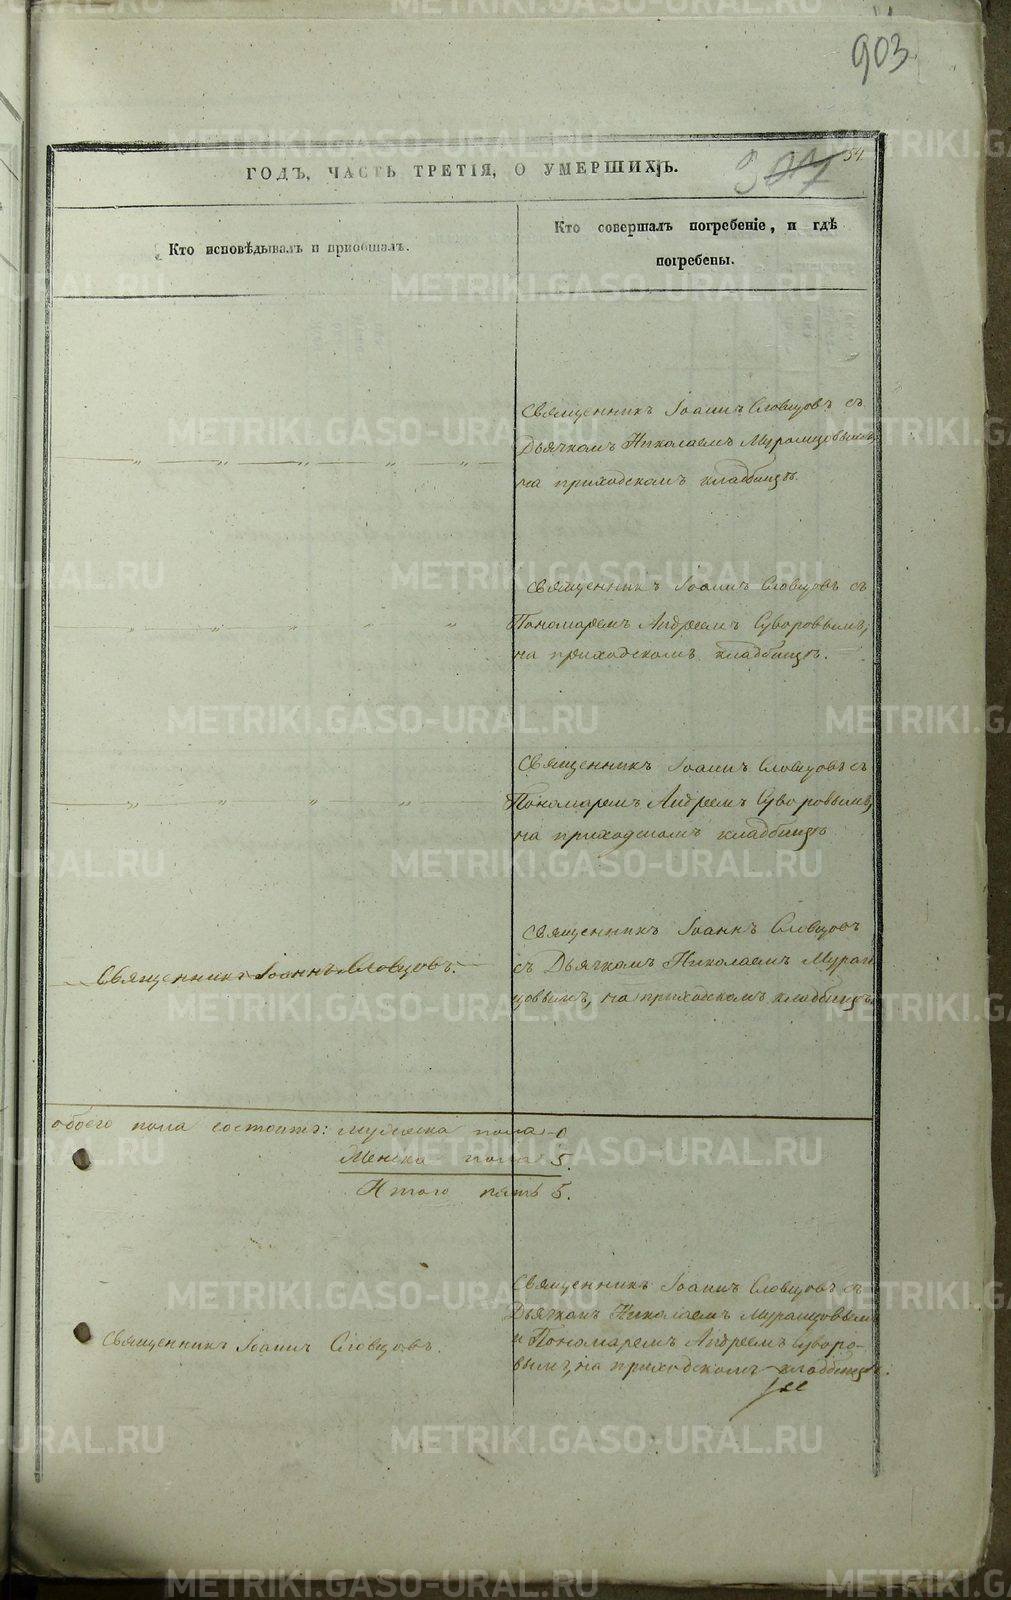 903
54
307
ГОДЪ, ЧАСТЬ ТРЕТІЯ, О УМЕРШИХЪ.
Кто исповѣдывалъ и пріобщалъ.
Кто совершалъ погребеніе, и гдѣ
погребены.
Священникъ Іоаннъ Словцовъ съ
Дьячкомъ Николаемъ Мурамцовымъ,
на приходскомъ кладбищѣ.
Священникъ Іоаннъ Словцовъ съ
Пономаремъ Андреемъ Суворовымъ,
на приходскомъ кладбищѣ.
Священникъ Іоаннъ Словцовъ съ
Пономаремъ Андреемъ Суворовымъ,
на приходскомъ кладбищѣ
Священникъ Іоаннъ Словцовъ.
Священникъ Іоаннъ Словцовъ
съ Дьячкомъ Николаемъ Мурам
цовымъ, на приходскомъ кладбищѣ.
обоего пола состоитъ: мужеска пола 0
Женска пола 5.
Итого пять 5.
Священникъ Іоаннъ Словцовъ.
Священникъ Іоаннъ Словцовъ съ
Дьячкомъ Николаемъ Мурамцовымъ
и Пономаремъ Андреемъ Суворо-
вымъ, на приходскомъ кладбищѣ.
METRIKI.GASO-URAL.RU